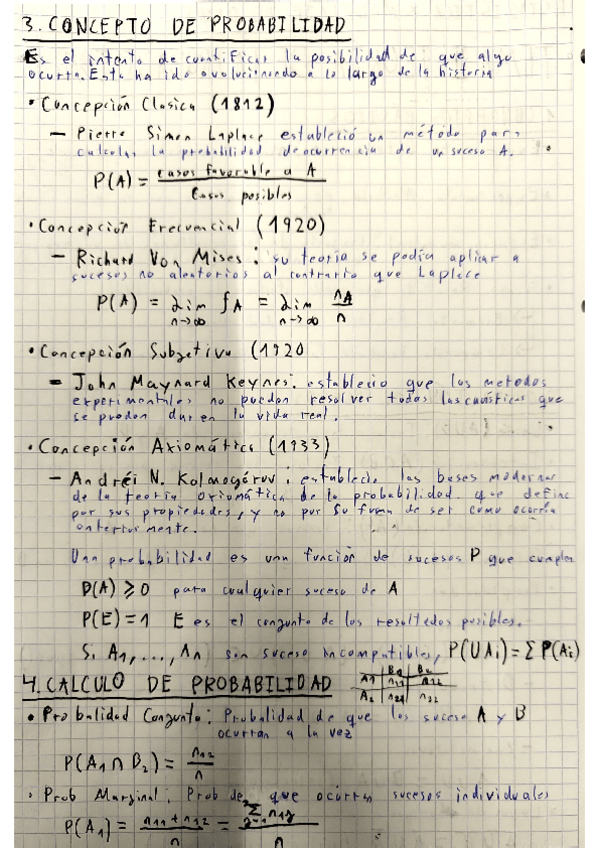 3. CONCEPTO DE PROBABILIDAD
Es el intento de cuantificar la posibilidad de que algo
ocurra. Esta ha ido evolucionando a lo largo de la historia
• Concepción Clasica (1812)
– Pierre Simon Laplace estableció un método para
calcular la probabilidad de ocurrencia de un suceso A.
P(A) = casos favorable a A
Casos posibles
• Concepción Frecuencial (1920)
– Richard Von Mises: su teoría se podía apliar a
sucesos no aleatorios al contrario que Laplace
P(A) = lim fA = lim nA
n→∞ n→∞ n
• Concepción Subjetiva (1920
– John Maynard Keynes: establecio que los metodos
experimentales no pueden resolver todas las casuísticas que
se pueden dar en la vida real.
• Concepción Axiomática (1933)
– Andréi N. Kolmogórov: establecio las bases modernas
de la teoría axiomática de la probabilidad que define
por sus propiedades, y no por su forma de ser como ocurría
anteriormente.
Una probabilidad es una función de sucesos P que cumplen
P(A) ⩾ 0 para cualquier suceso de A
P(E) = 1 E es el conjunto de los resultados posibles.
Si A1, ..., An son suceso incompatibles, P(UAi) = Σ P(Ai)
4. CALCULO DE PROBABILIDAD
B1 B2
A1 n11 n12
A2 n21 n22
• Probalidad Conjunta: Probalidad de que los suceso A y B
ocurran a la vez
P(A1 ∩ B2) = n12
n
• Prob Marginal: Prob de que ocurran sucesos individuales
P(A1) = n11 + n12 = Σ n1j
n n